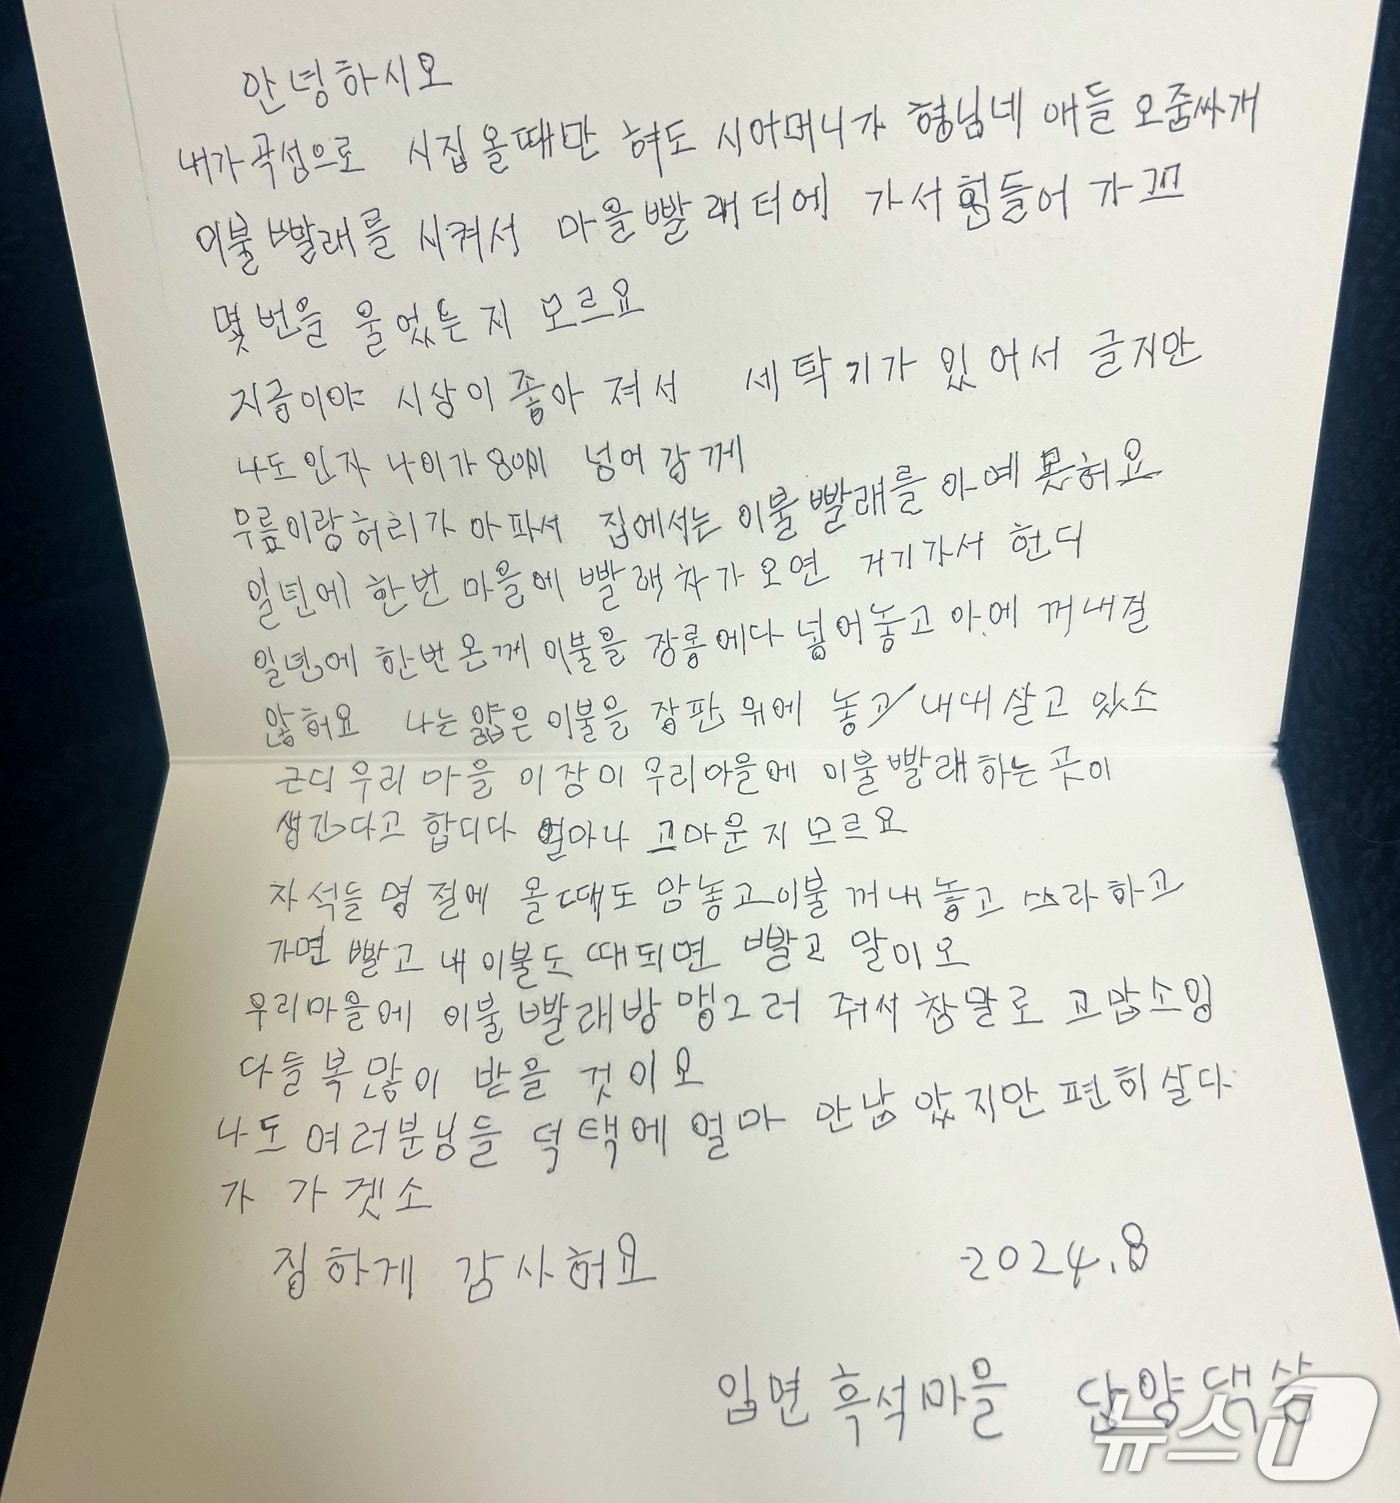 안녕하시오
내가 곡성으로 시집 올때만 혀도 시어머니가 형님네 애들 오줌싸개
이불 빨래를 시켜서 마을빨래터에 가서 힘들어 가꼬
몇번을 울었는지 모르요
지금이야 시상이 좋아 져서 세탁기가 있어서 글지만
나도 인자 나이가 80이 넘어 감께
무릎이랑 허리가 아파서 집에서는 이불빨래를 아예 못혀요
일년에 한번 마을에 빨래차가 오면 거기가서 헌디
일년에 한번 온께 이불을 장롱에다 넣어놓고 아에 꺼내질
않허요 나는 얇은 이불을 장판 위에 놓고 내내 살고 있소
근디 우리 마을 이장이 우리마을에 이불빨래하는 곳이
생긴다고 합디다 얼마나 고마운지 모르요
자석들 명절에 올때도 맘놓고 이불 꺼내놓고 쓰라하고
가면 빨고 내 이불도 때되면 빨고 말이오
우리마을에 이불빨래방 맹그러 줘서 참말로 고맙소잉
다들 복 많이 받을 것이오
나도 여러분님들 덕택에 얼마 안남았지만 편히살다
가 가겟소
집하게 감사허요 2024.8
입면 흑석마을 단양댁
뉴스1